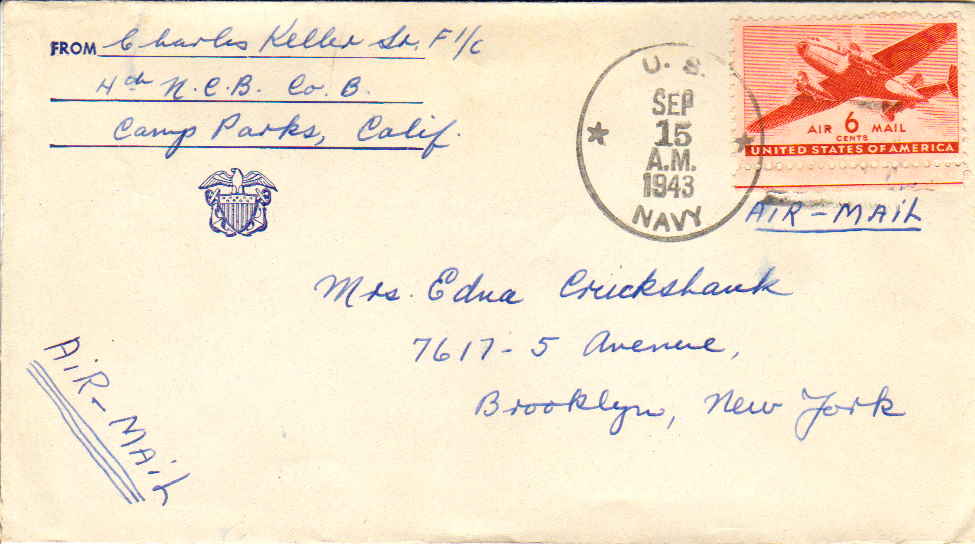 FROM Charles Keller Sr. F 1/c
4th N.C.B. Co. B.
Camp Parks, Calif.
U. S.
SEP
15
A.M.
1943
NAVY
AIR 6 MAIL
CENTS
UNITED STATES OF AMERICA
AIR-MAIL
Mrs. Edna Cruckshank
7617-5 Avenue,
Brooklyn, New York
AiR-MAiL